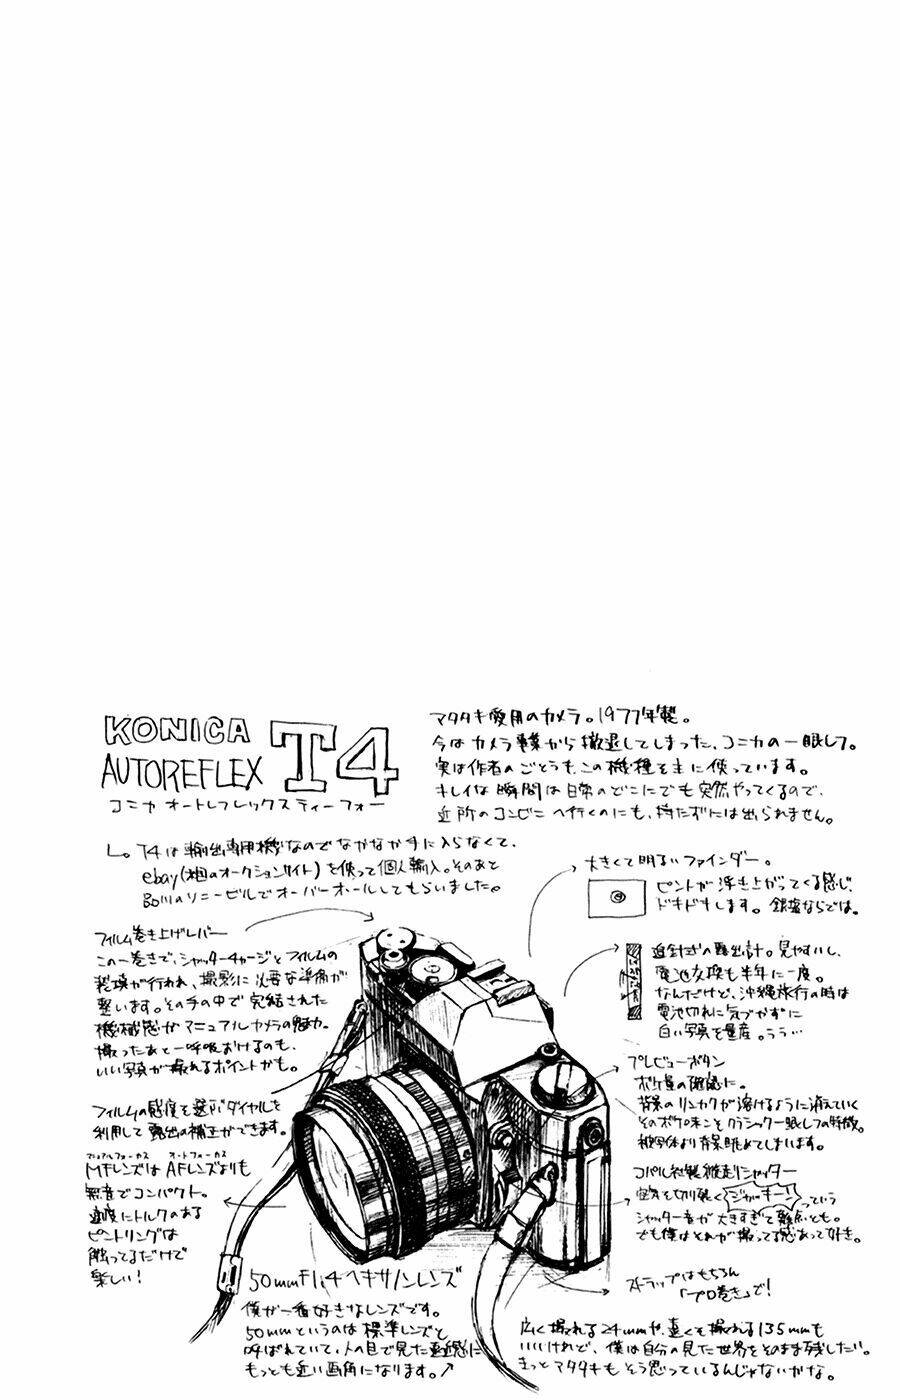 KONICA
AUTOREFLEX T4
コニカ オートレフレックス ティーフォー
マタタキ愛用のカメラ。1977年製。
今はカメラ事業から撤退してしまった、コニカの一眼レフ。
実は作者のごとうも、この機種を主に使っています。
キレイな瞬間は日常のどこにでも突然やってくるので、
近所のコンビニへ行くのにも、持たずには出られません。
T4は輸出専用機なのでなかなか手に入らなくて、
ebay(米国のオークションサイト)を使って個人輸入。そのあと
品川のソニービルでオーバーオールしてもらいました。
大きくて明るいファインダー。
ピントが浮き上がってくる感じ、
ドキドキします。銀塩ならでは。
フィルム巻き上げレバー
この一巻きで、シャッターチャージとフィルムの
装填が行われ、撮影に必要な準備が
整います。その手の中で完結された
機械感がマニュアルカメラの魅力。
撮ったあと一呼吸おけるのも、
いい写真が撮れるポイントかも。
追針式の露出計。見やすいし、
電池交換も半年に一度。
なんだけど、沖縄旅行の時は
電池切れに気づかずに
白い写真を量産。ううう…
プレビューボタン
ボケ量の確認に。
背景のリンカクが溶けるように消えていく
そのボケ味こそクラシック一眼レフの特徴。
被写体より背景眺めてしまいます。
フィルムの感度を選ぶダイヤルを
利用して露出の補正ができます。
マニュアルフォーカス オートフォーカス
MFレンズはAFレンズよりも
無音でコンパクト。
適度にトルクのある
ピントリングは
触ってるだけで
楽しい!
コパル社製縦走りシャッター
空気を切り裂く「ジャッキーン」っていう
シャッター音が大きすぎて難点とも。
でも僕はそれが撮ってる感あって好き。
ストラップはもちろん
「プロ巻き」で!
50mm F1.4 ヘキサノンレンズ
僕が一番好きなレンズです。
50mmというのは標準レンズと
呼ばれていて、人の目で見た遠近感に
もっとも近い画角になります。
広く撮れる24mmや、遠くを撮れる135mmも
いいけれど、僕は自分の見た世界をそのまま残したい。
きっとマタタキもそう思っているんじゃないかな。